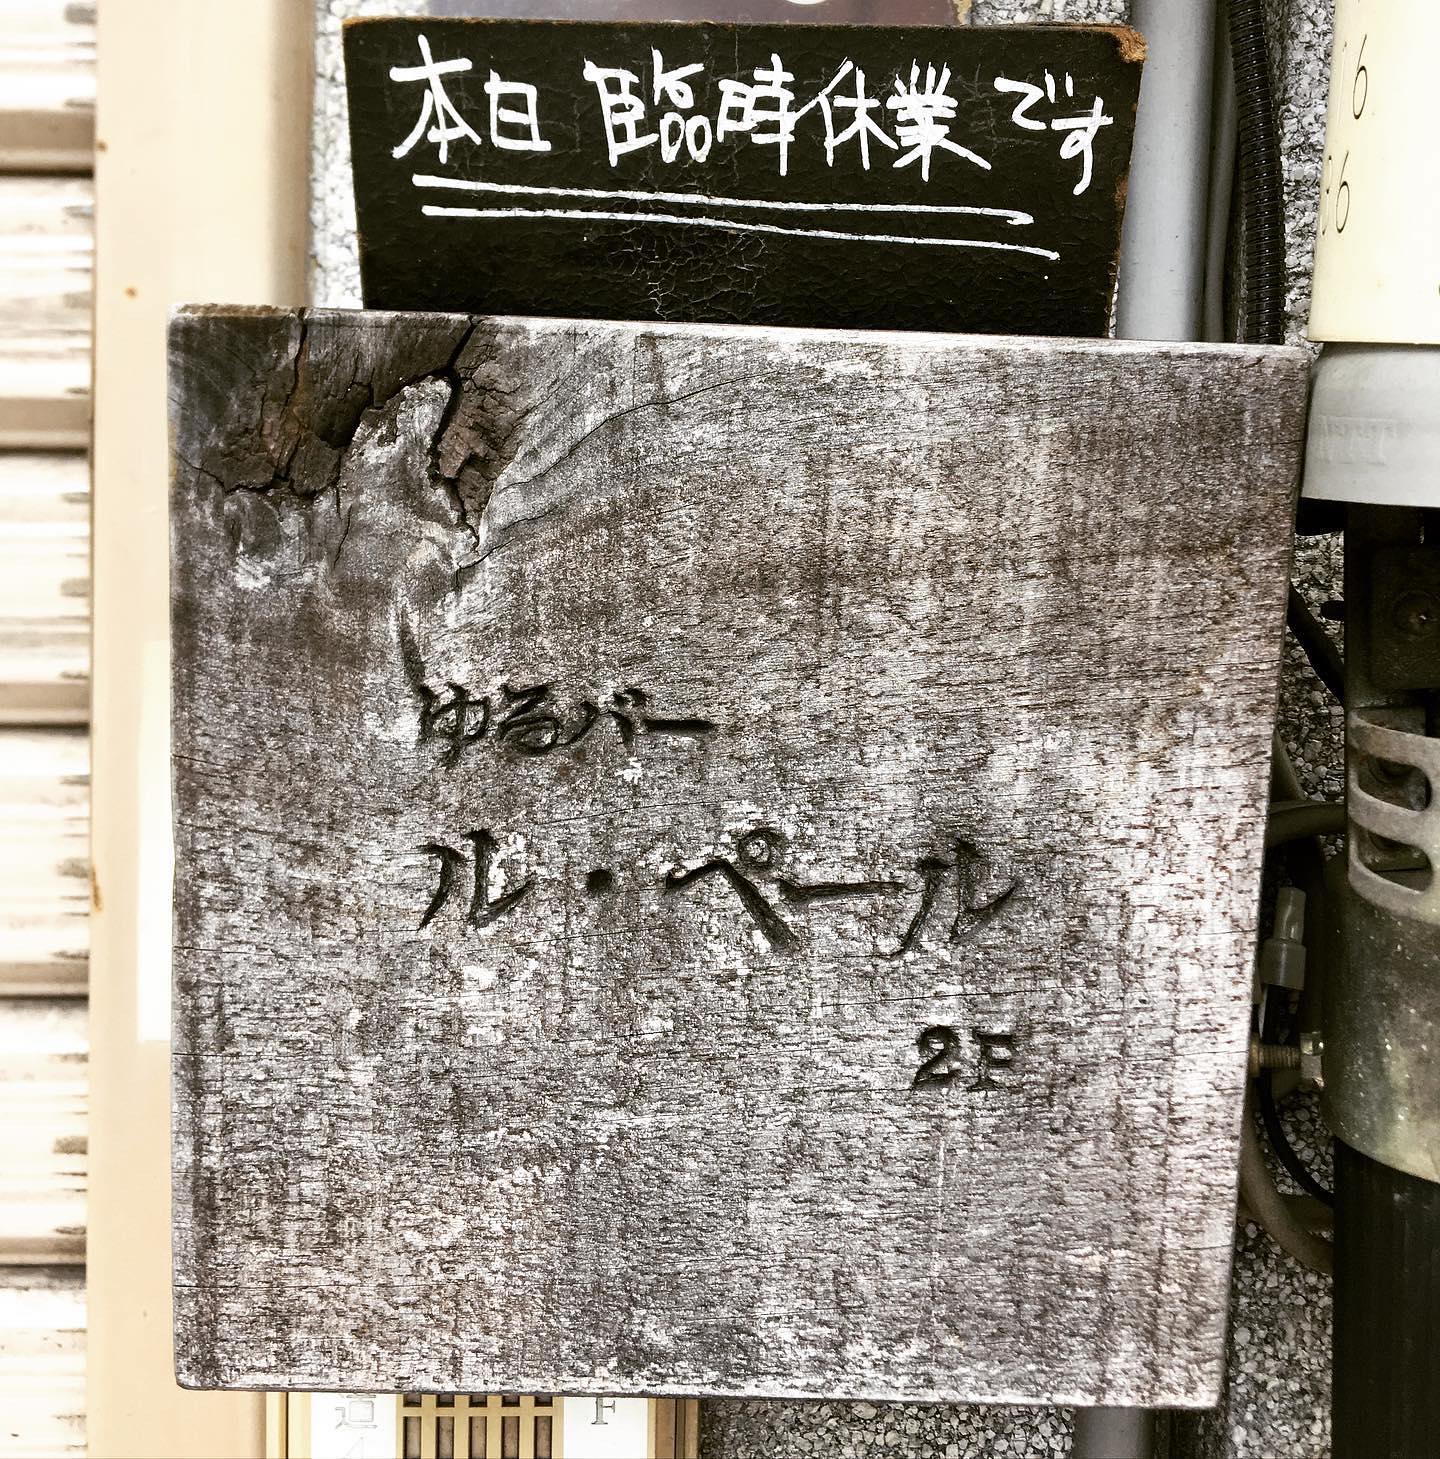 本日 臨時休業です
ゆるバー
ル・ペール
2F
道
F